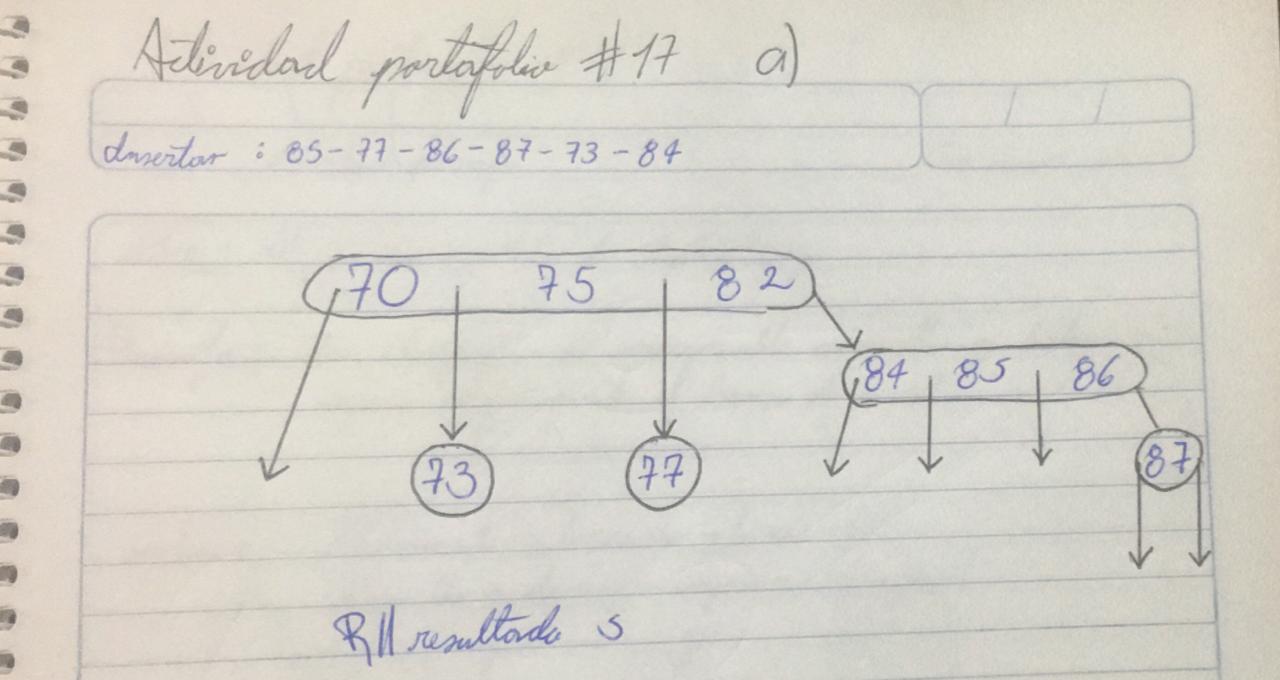 Actividad portafolio #17 a)
Insertar : 85-77-86-87-73-84
70 75 82
84 85 86
73 77 87
R// resultado 5